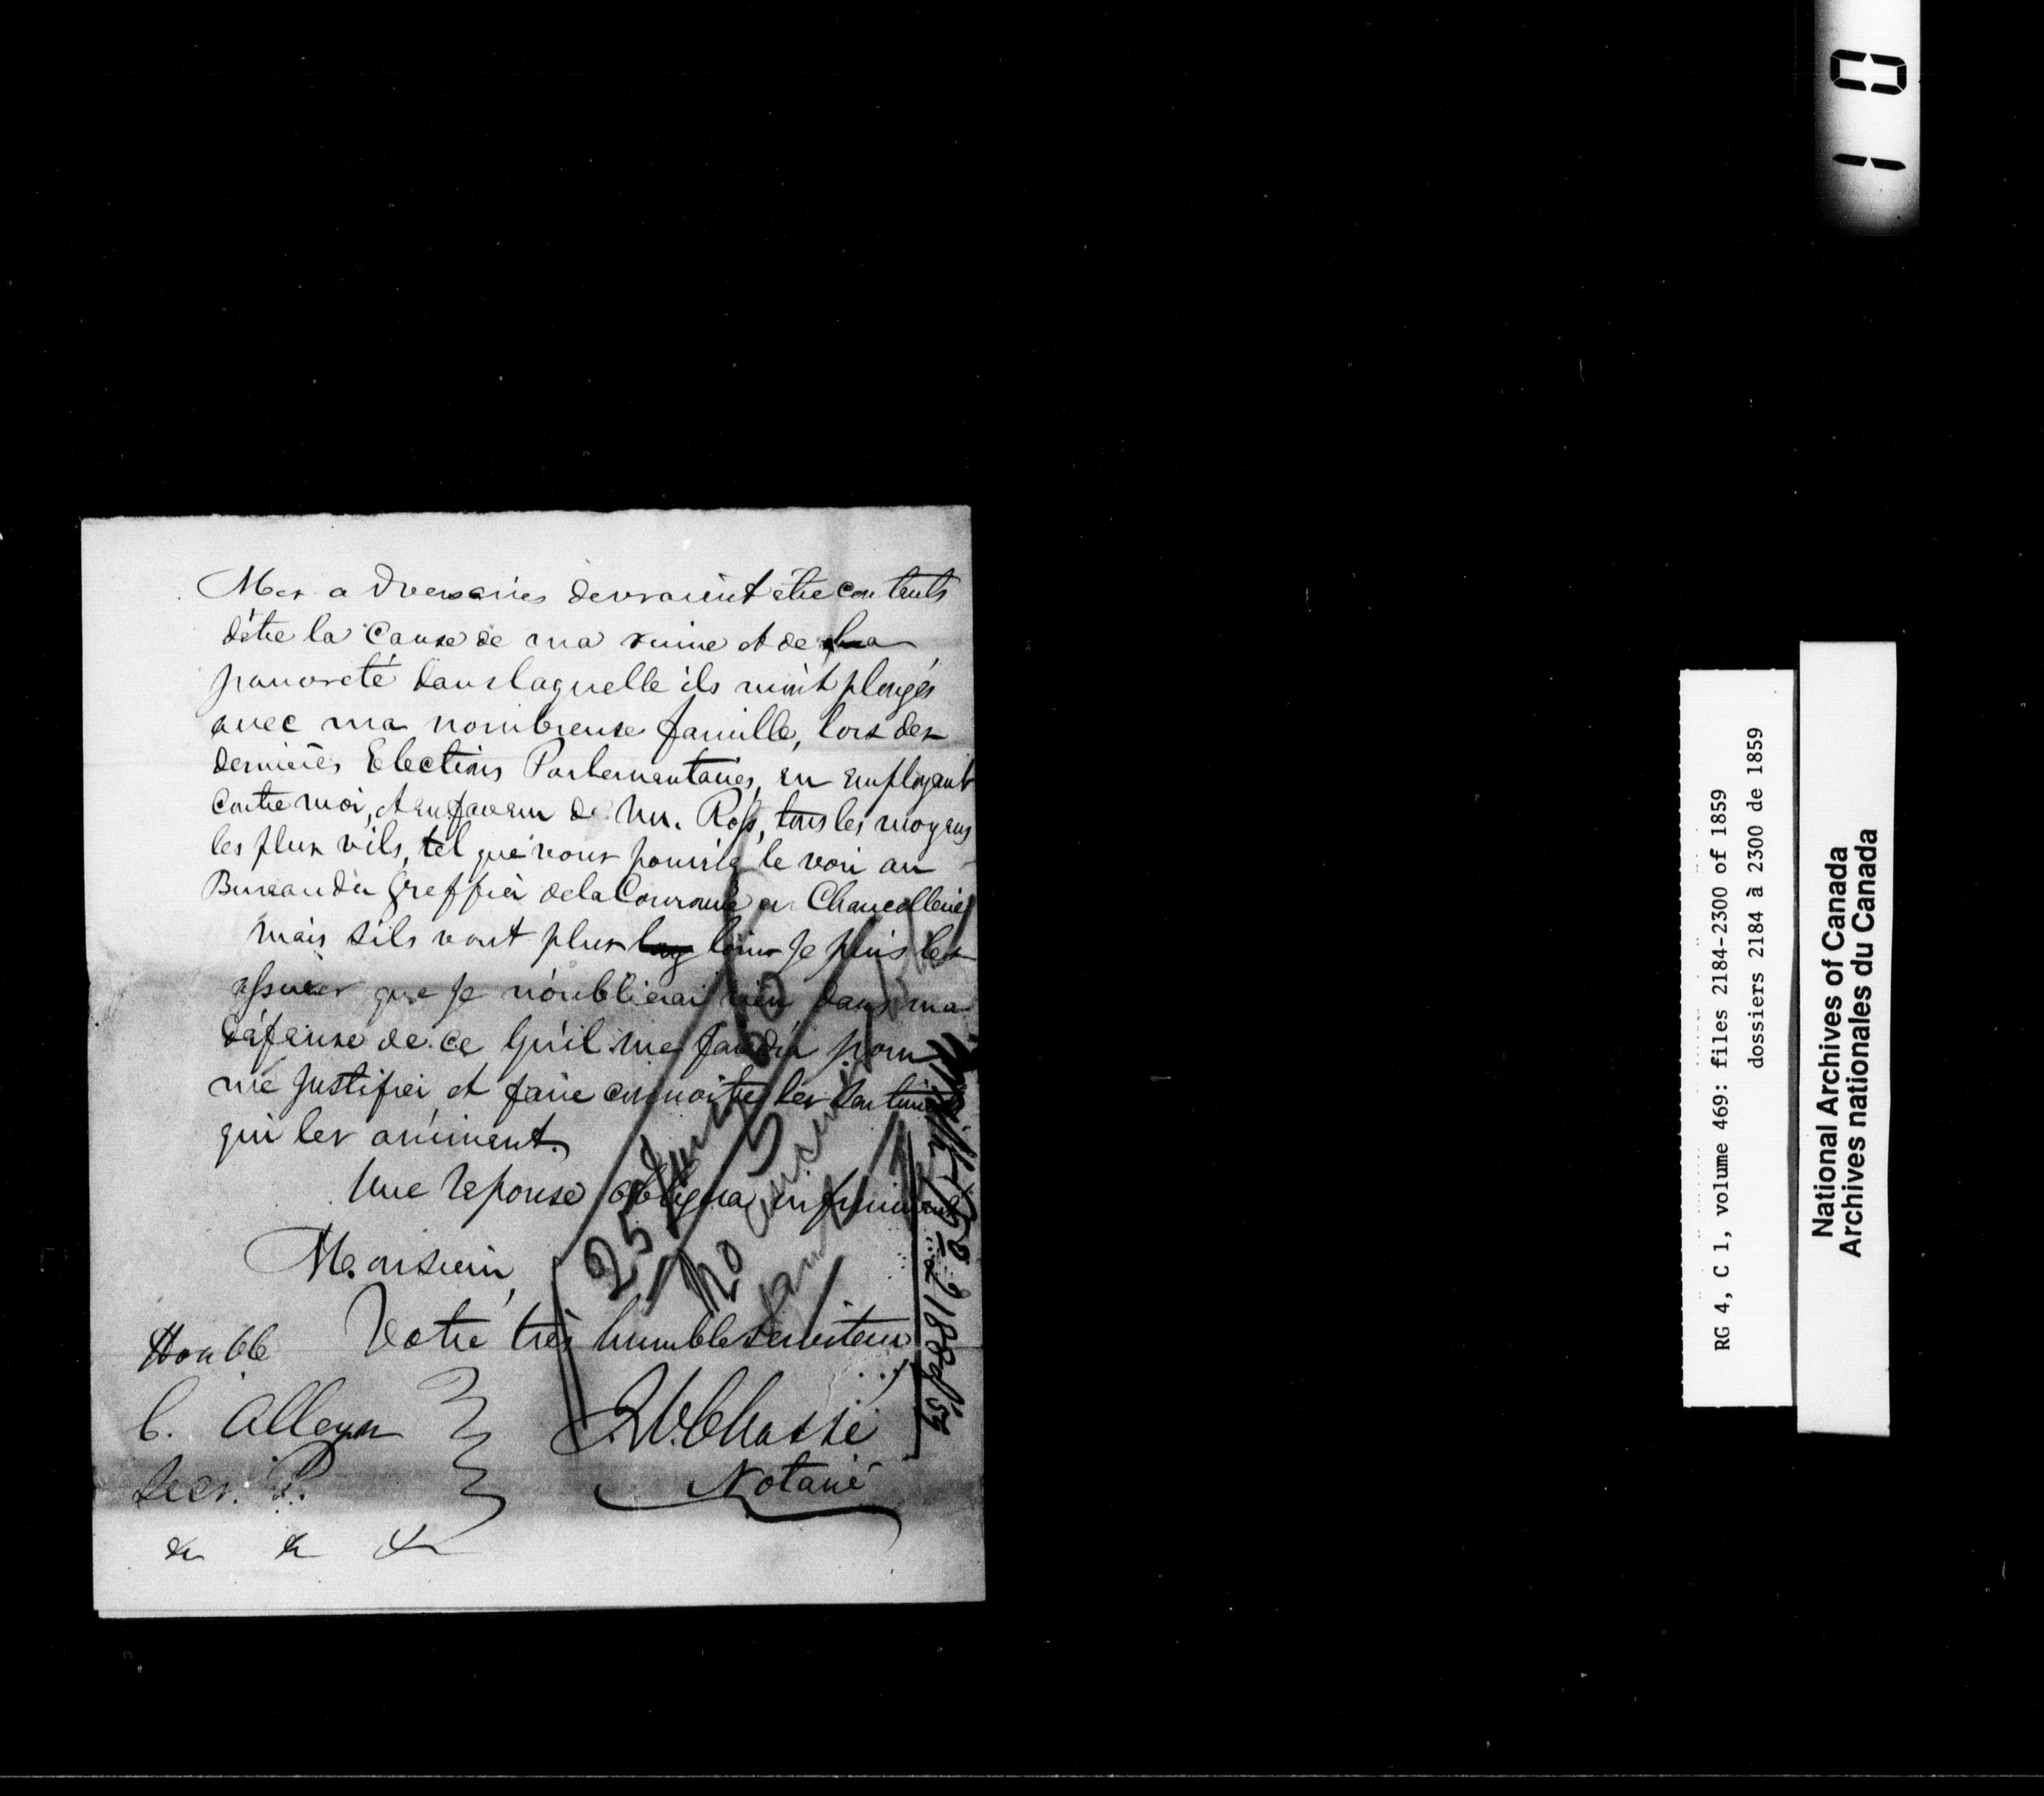 Mes adversaires devraient être contents
d'être la Cause de ma ruine et de la
pauvreté dans laquelle ils m'ont plongés
avec ma nombreuse famille, lors des
dernières Elections Parlementaires, en employant
contre moi, et en faveur de Mr. Ross, tous les moyens
les plus vils, tel que vous pourrez le voir au
Bureau du Greffier de la Couronne en Chancellerie
mais s'ils vont plus loins Je puis les
assurer que Je n'oublierai rien dans ma
défense de ce qu'il me faudra pour
me justifier et faire connoitre les sentiments
qui les animent.
Une reponse obligera infiniment
Monsieur,
Votre très humble serviteur
Honble
C. Alleyn
Secr. P.
& & &
Chassé
Notaire
25
20
2188 of 59
10
RG 4, C 1, volume 469: files 2184-2300 of 1859
dossiers 2184 à 2300 de 1859
National Archives of Canada
Archives nationales du Canada